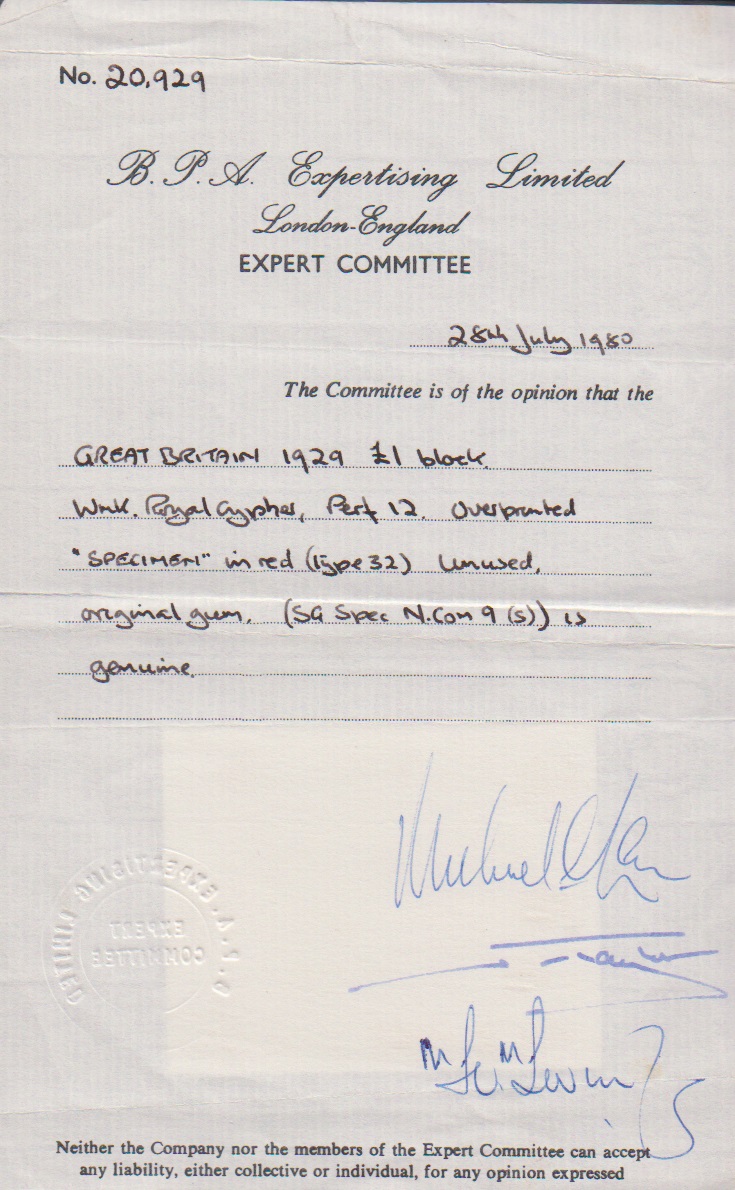 No. 20,929
B. P. A. Expertising Limited
London-England
EXPERT COMMITTEE
28th July 1980
The Committee is of the opinion that the
GREAT BRITAIN 1929 £1 black.
Wmk. Royal Cypher, Perf 12. Overprinted
"SPECIMEN" in red (Type 32) Unused,
original gum. (SG Spec N.Com 9 (s)) is
genuine.
B.P.A. EXPERTISING LIMITED
EXPERT
COMMITTEE
Michael
Neither the Company nor the members of the Expert Committee can accept
any liability, either collective or individual, for any opinion expressed